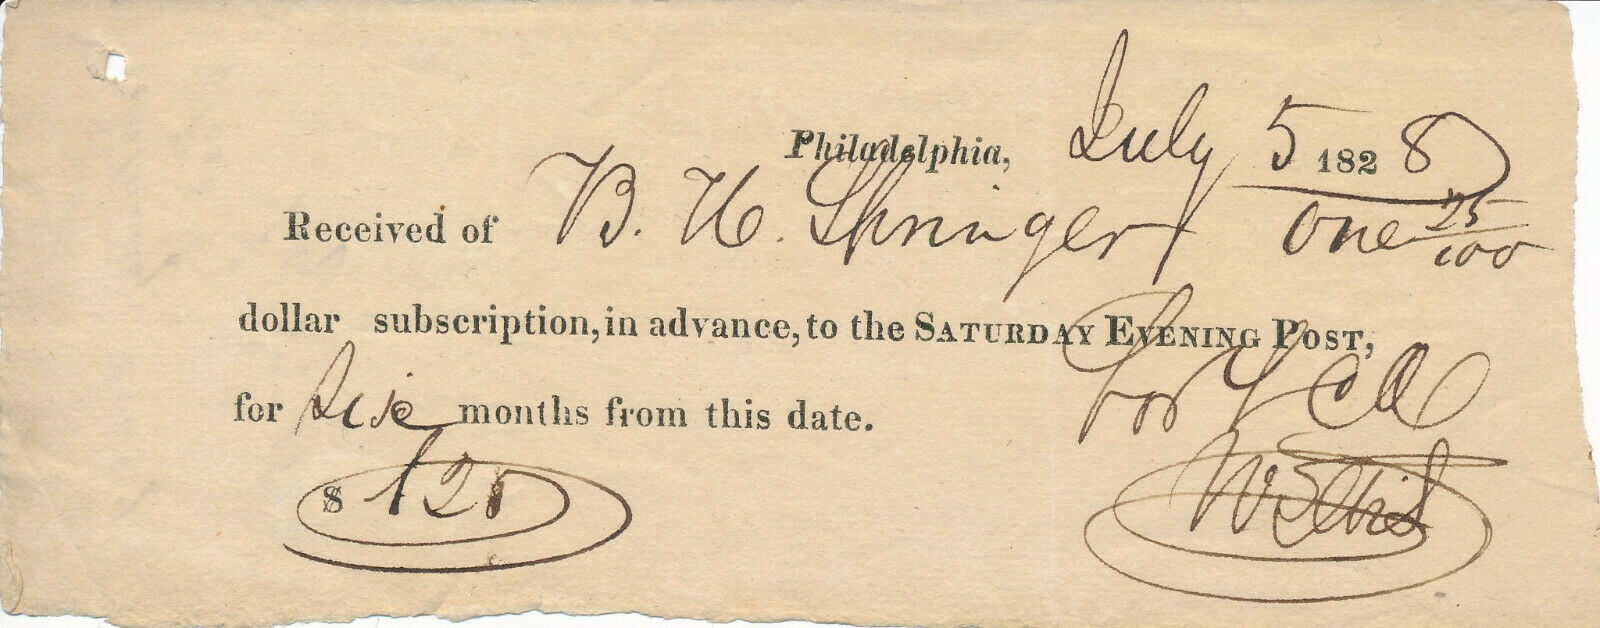 Philadelphia, July 5 1828
Received of B. H. Springer One 25/100
dollar subscription, in advance, to the SATURDAY EVENING POST,
for Six months from this date.
For
$ 1 25
W Ellis